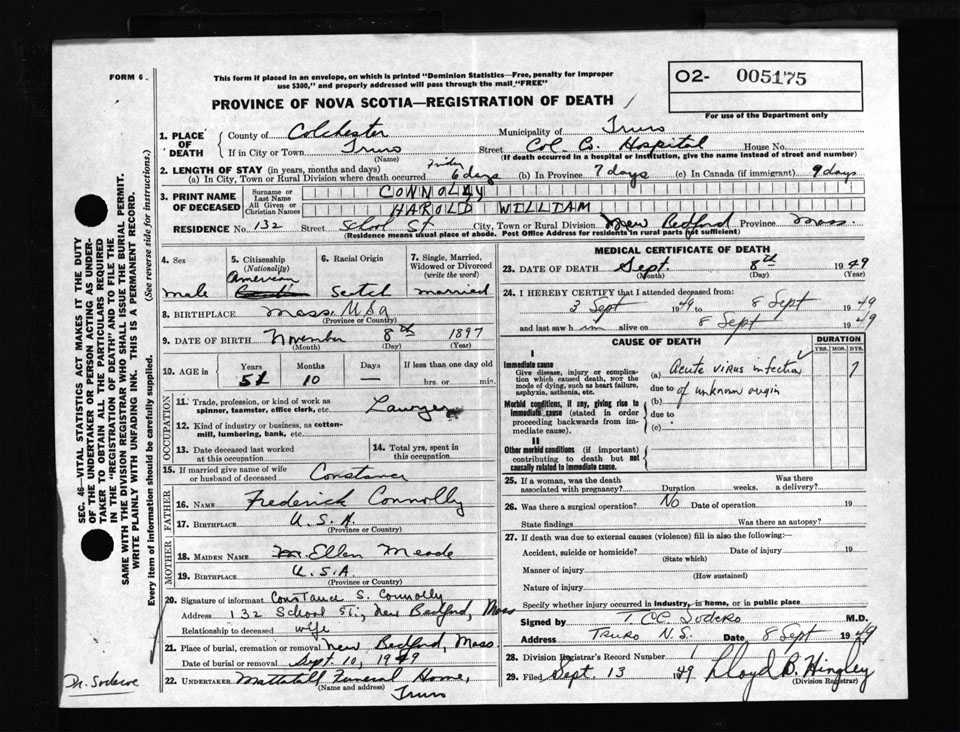 FORM 6.
This form if placed in an envelope, on which is printed "Dominion Statistics—Free, penalty for improper
use $300," and properly addressed will pass through the mail "FREE"
O2- 005175
For use of the Department only
PROVINCE OF NOVA SCOTIA—REGISTRATION OF DEATH
1. PLACE OF DEATH
County of Colchester Municipality of Truro
If in City or Town Truro Street Col. Co. Hospital House No.
(Name) (If death occurred in a hospital or institution, give the name instead of street and number)
2. LENGTH OF STAY (in years, months and days)
(a) In City, Town or Rural Division where death occurred 6 days (b) In Province 7 days (c) In Canada (if immigrant) 9 days
3. PRINT NAME OF DECEASED
Surname or Last Name CONNOLLY
All Given or Christian Names HAROLD WILLIAM
RESIDENCE No. 132 Street School St City, Town or Rural Division New Bedford Province Mass.
(Residence means usual place of abode. Post Office Address for residents in rural parts not sufficient)
4. Sex
male
5. Citizenship
(Nationality)
American
6. Racial Origin
Scotch
7. Single, Married,
Widowed or Divorced
(write the word)
married
8. BIRTHPLACE Mass. USA
(Province or Country)
9. DATE OF BIRTH November 8th 1897
(Month) (Day) (Year)
10. AGE in Years Months Days If less than one day old
51 10 — hrs. or min.
OCCUPATION
11. Trade, profession, or kind of work as
spinner, teamster, office clerk, etc. Lawyer
12. Kind of industry or business, as cotton-
mill, lumbering, bank, etc.
13. Date deceased last worked
at this occupation
14. Total yrs. spent in
this occupation
15. If married give name of wife
or husband of deceased Constance
FATHER
16. NAME Frederick Connolly
17. BIRTHPLACE U.S.A.
(Province or Country)
MOTHER
18. MAIDEN NAME Ellen Meade
19. BIRTHPLACE U.S.A.
(Province or Country)
20. Signature of informant Constance S. Connolly
Address 132 School St., New Bedford, Mass
Relationship to deceased wife
21. Place of burial, cremation or removal New Bedford, Mass.
Date of burial or removal Sept. 10, 1949
22. UNDERTAKER Mattatall Funeral Home,
(Name and address) Truro
MEDICAL CERTIFICATE OF DEATH
23. DATE OF DEATH Sept. 8th 1949
(Month) (Day) (Year)
24. I HEREBY CERTIFY that I attended deceased from:
3 Sept 1949 to 8 Sept 1949
and last saw him alive on 8 Sept 1949
CAUSE OF DEATH
DURATION
YRS. MOS. DYS.
I
Immediate cause
Give disease, injury or complica-
tion which caused death, NOT the
mode of dying, such as heart failure,
asphyxia, asthenia, etc.
(a) Acute virus infection 7
due to of unknown origin
Morbid conditions, if any, giving rise to
immediate cause (stated in order
proceeding backwards from im-
mediate cause).
(b)
due to
(c)
II
Other morbid conditions (if important)
contributing to death but not
causally related to immediate cause.
25. If a woman, was the death
associated with pregnancy? Duration weeks. Was there
a delivery?
26. Was there a surgical operation? No Date of operation 19
State findings Was there an autopsy?
27. If death was due to external causes (violence) fill in also the following:
Accident, suicide or homicide? Date of injury 19
(State which)
Manner of injury
(How sustained)
Nature of injury
Specify whether injury occurred in industry, in home, or in public place
Signed by M.D.
Address Truro N.S. Date 8 Sept 1949
28. Division Registrar's Record Number 1
29. Filed Sept. 13 1949 Lloyd B. Hingley
(Division Registrar)
SEC. 46—VITAL STATISTICS ACT MAKES IT THE DUTY
OF THE UNDERTAKER OR PERSON ACTING AS UNDER-
TAKER TO OBTAIN ALL THE PARTICULARS REQUIRED
IN THE "REGISTRATION OF DEATH" AND TO FILE THE
SAME WITH THE DIVISION REGISTRAR WHO SHALL ISSUE THE BURIAL PERMIT.
WRITE PLAINLY WITH UNFADING INK. THIS IS A PERMANENT RECORD.
Every item of information should be carefully supplied. (See reverse side for instructions.)